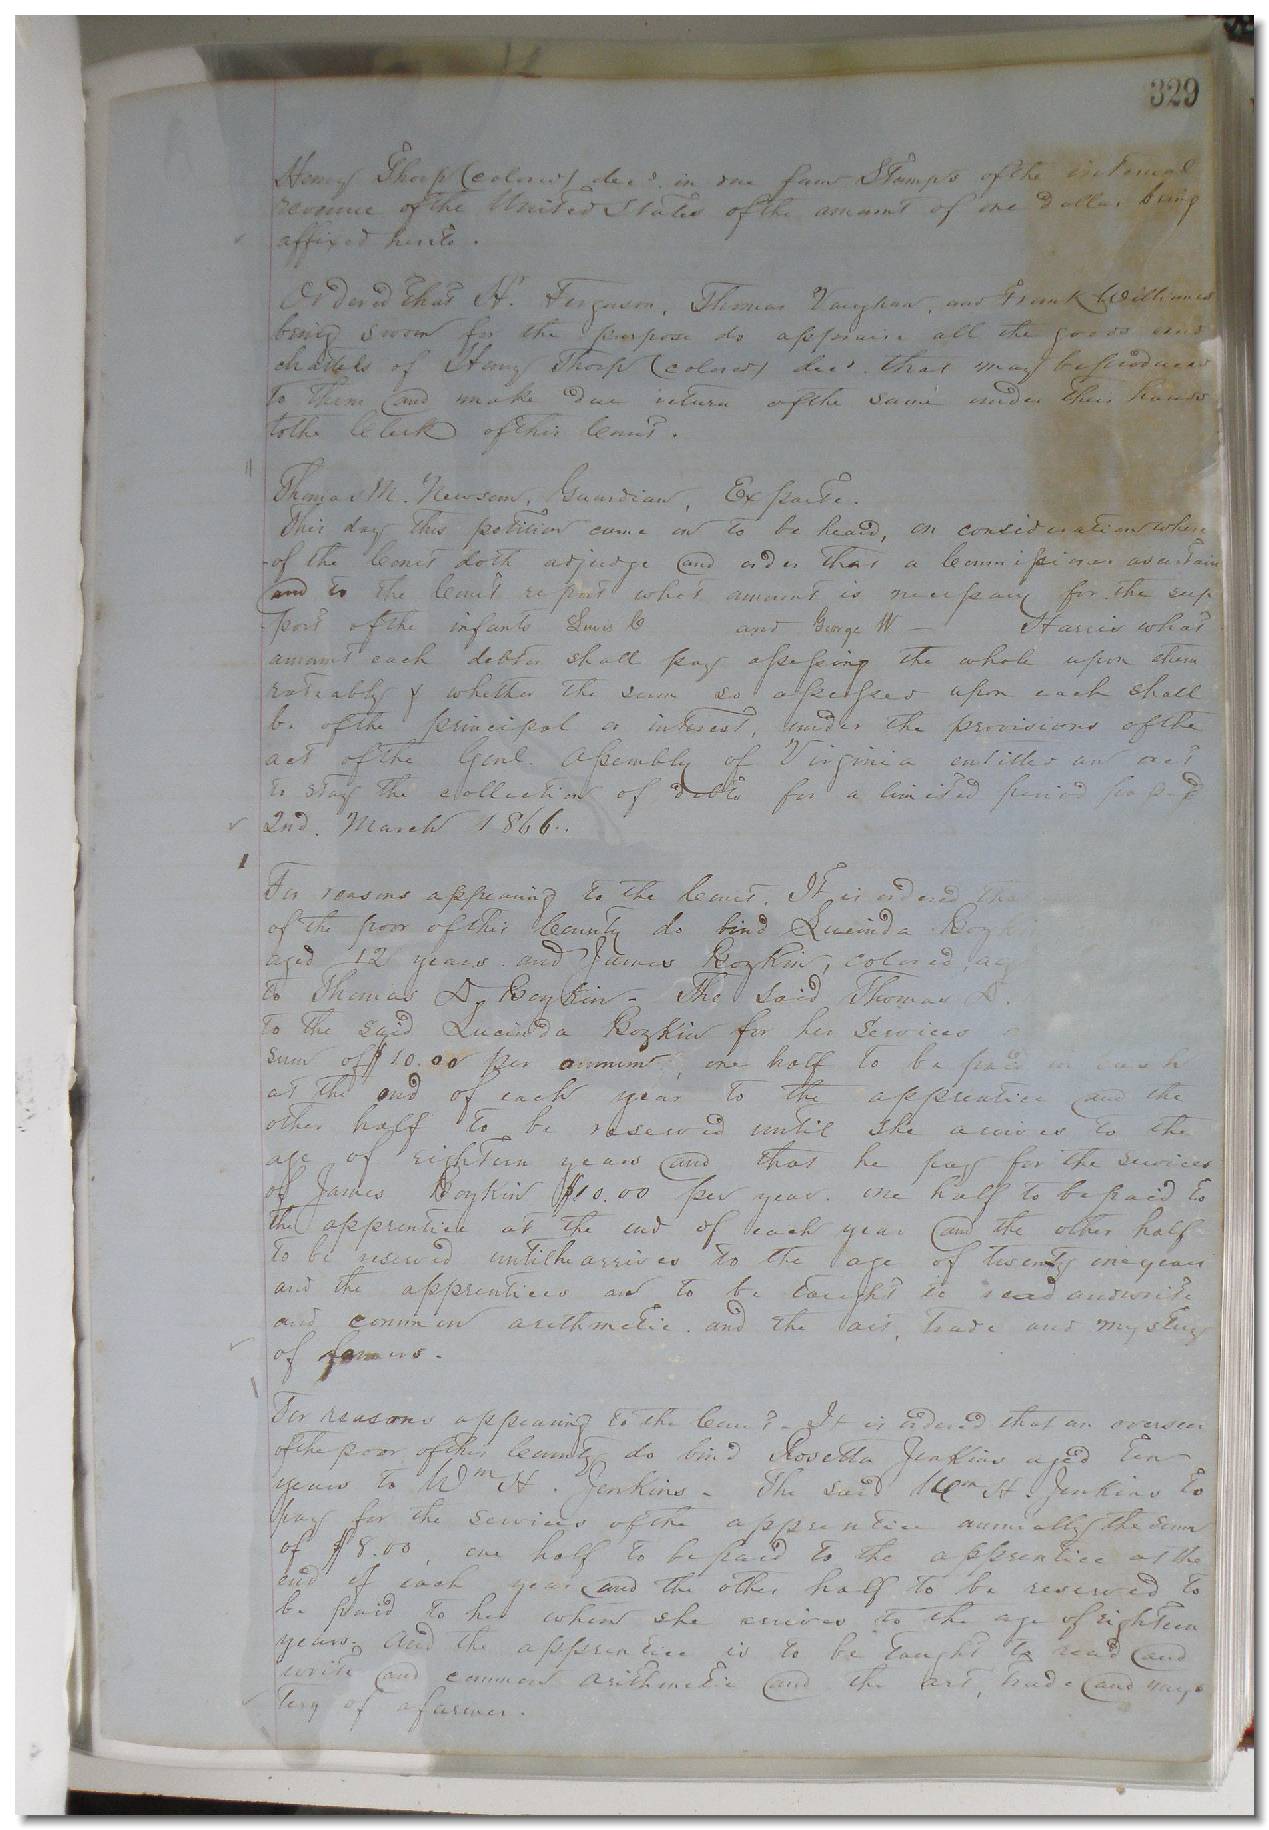 329
Henry Thorp (colored) decd. in due form Stamps of the internal
revenue of the United States of the amount of one dollar being
affixed hereto.
Ordered that H. Ferguson, Thomas Vaughan, and Frank Williams
being sworn for the purpose do appraise all the goods and
chattels of Henry Thorp (colored) decd. that may be produced
to them and make due return of the same under their hands
to the Clerk of this Court.
Thomas M. Newsom, Guardian, Ex parte.
This day this petition came on to be heard, on consideration where
of the Court doth adjudge and order that a Commissioner ascertain
and to the Court report what amount is necessary for the sup
port of the infants Lewis C and George W - Harris what
amount each debtor shall pay assessing the whole upon them
rateably & whether the sum so assessed upon each shall
be of the principal or interest, under the provisions of the
act of the Genl. Assembly of Virginia entitled an act
to stay the collection of debts for a limited period passed
2nd. March 1866.
For reasons appearing to the Court. It is ordered tha
of the poor of this County do bind Lucinda Boyki
aged 12 years and James Boykin, colored, ag
to Thomas D. Boykin - The said Thomas D.
to the said Lucinda Boykin for her services
sum of $10.00 per annum, one half to be paid in cash
at the end of each year to the apprentice and the
other half to be reserved until she arrives to the
age of eighteen years and that he pay for the services
of James Boykin $10.00 per year. one half to be paid to
the apprentice at the end of each year and the other half
to be reserved until he arrives to the age of twenty one years
and the apprentices are to be taught to read and write
and common arithmetic and the art, trade and mystery
of farmers.
For reasons appearing to the Court - It is ordered that an overseer
of the poor of this County do bind Rosetta Jenkins aged ten
years to Wm H. Jenkins - The said Wm H. Jenkins to
pay for the services of the apprentice annually the sum
of $8.00, one half to be paid to the apprentice at the
end of each year and the other half to be reserved to
be paid to her when she arrives to the age of eighteen
years. And the apprentice is to be taught to read and
write and common arithmetic and the art, trade and mys-
tery of a farmer.